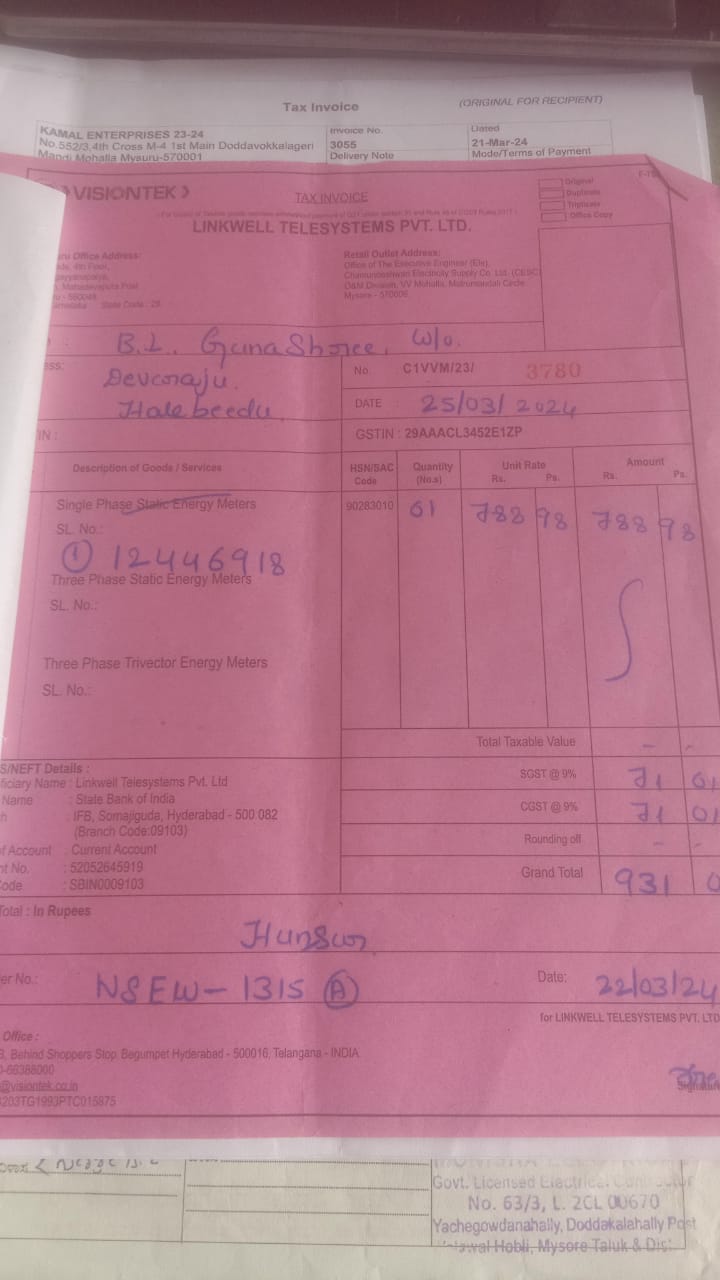 Tax Invoice
(ORIGINAL FOR RECIPIENT)
KAMAL ENTERPRISES 23-24
No.552/3,4th Cross M-4 1st Main Doddavokkalageri
Mandi Mohalla Mysuru-570001
Invoice No.
3055
Delivery Note
Dated
21-Mar-24
Mode/Terms of Payment
VISIONTEK
TAX INVOICE
Original
Duplicate
Triplicate
Office Copy
LINKWELL TELESYSTEMS PVT. LTD.
Office Address:
4th Floor,
Mahadevapura Post
State Code : 29
Retail Outlet Address:
Office of The Executive Engineer (Ele),
Chamundeshwari Electricity Supply Co. Ltd. (CESC)
O&M Division, VV Mohalla, Matrumandali Circle
Mysore - 570006
B.L. GunaShree, W/o.
Devaraju.
Halebeedu
No. C1VVM/23/ 3780
DATE : 25/03/2024
GSTIN : 29AAACL3452E1ZP
Description of Goods / Services
HSN/SAC Code
Quantity (No.s)
Unit Rate
Rs. Ps.
Amount
Rs. Ps.
Single Phase Static Energy Meters
90283010 01 788 98 788 98
SL. No.:
① 12446918
Three Phase Static Energy Meters
SL. No.:
Three Phase Trivector Energy Meters
SL. No.:
Total Taxable Value - -
SGST @ 9% 71 01
CGST @ 9% 71 01
Rounding off - -
Grand Total 931 0
S/NEFT Details :
ficiary Name : Linkwell Telesystems Pvt. Ltd
Name : State Bank of India
h : IFB, Somajiguda, Hyderabad - 500 082
(Branch Code:09103)
f Account : Current Account
nt No. : 52052645919
Code : SBIN0009103
Total : In Rupees
Hunsur
er No.: NSEW-1315 Ⓐ
Date: 22/03/24
for LINKWELL TELESYSTEMS PVT. LTD
Office :
3, Behind Shoppers Stop, Begumpet Hyderabad - 500016, Telangana - INDIA.
0-66388000
@visiontek.co.in
203TG1993PTC015875
Govt. Licensed Electrical Contractor
No. 63/3, L. 2CL 00670
Yachegowdanahally, Doddakalahally Post
Hobli, Mysore Taluk & Dist